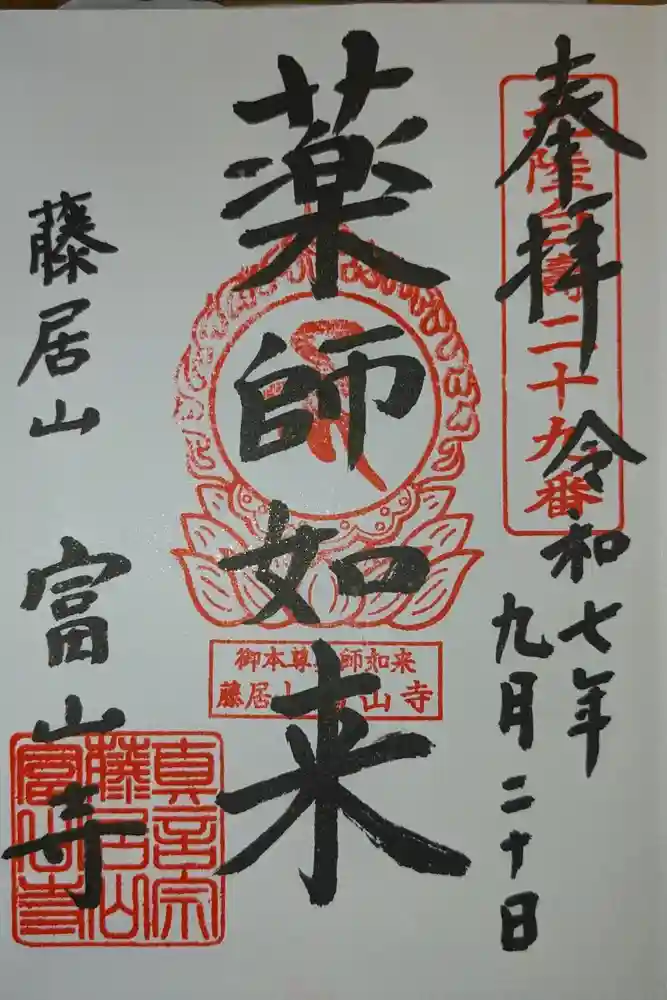 奉拝
北陸白壽二十九番
令和七年
九月二十日
薬師如来
御本尊薬師如来
藤居山富山寺
藤居山
富山寺
真言宗
藤居山
富山寺